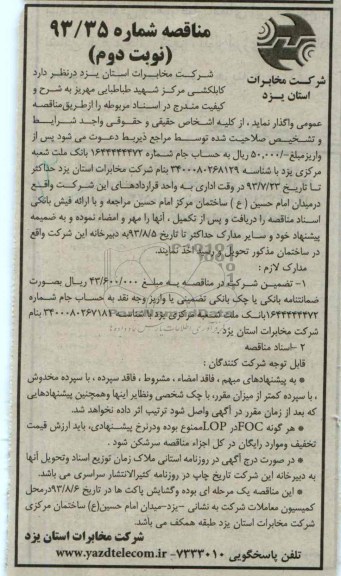 مناقصه شماره ۹۳/۳۵
(نوبت دوم)
شرکت مخابرات
استان یزد
شرکت مخابرات استان یزد درنظر دارد
کابلکشی مرکز شهید طباطبایی مهریز به شرح و
کیفیت مندرج در اسناد مربوطه را ازطریق مناقصه
عمومی واگذار نماید ، از کلیه اشخاص حقیقی و حقوقی واجد شرایط
و تشخیص صلاحیت شده توسط مراجع ذیربط دعوت می شود پس از
واریزمبلغ ۵۰٫۰۰۰/- ریال به حساب جام شماره ۱۶۴۴۴۴۴۴۷۲ بانک ملت شعبه
مرکزی یزد با شناسه ۳۴۰۰۰۸۰۲۶۸۱۲۹ بنام شرکت مخابرات استان یزد حداکثر
تا تاریخ ۹۳/۷/۲۳ در وقت اداری به واحد قراردادهای این شرکت واقع
درمیدان امام حسین ( ع ) ساختمان مرکز امام حسین مراجعه و با ارائه فیش بانکی
اسناد مناقصه را دریافت و پس از تکمیل ، آنها را مهر و امضاء نموده و به ضمیمه
پیشنهاد خود و سایر مدارک حداکثر تا تاریخ ۹۳/۸/۵به دبیرخانه این شرکت واقع
در ساختمان مذکور تحویل و رسید اخذ نمایند.
مدارک لازم :
۱- تضمین شرکت در مناقصه به مبلغ ۴۳/۶۰۰/۰۰۰ ریال بصورت
ضمانتنامه بانکی یا چک بانکی تضمینی یا واریز وجه نقد به حساب جام شماره
۱۶۴۴۴۴۴۴۷۲بانک ملت شعبه مرکزی یزد با شناسه ۳۴۰۰۰۸۰۲۶۷۱۸۱ بنام
شرکت مخابرات استان یزد
۲ -اسناد مناقصه
قابل توجه شرکت کنندگان :
● به پیشنهادهای مبهم ، فاقد امضاء ، مشروط ، فاقد سپرده ، با سپرده مخدوش
، با سپرده کمتر از میزان مقرر، با چک شخصی ونظایر اینها وهمچنین پیشنهادهایی
که بعد از زمان مقرر در آگهی واصل شود ترتیب اثر داده نخواهد شد.
● هر گونه FOCدر LOPممنوع بوده ودرنرخ پیشنهادی، باید ارزش قیمت
تخفیف وموارد رایگان در کل اجزاء مناقصه سرشکن شود .
● در صورت درج آگهی در روزنامه استانی ملاک زمان توزیع اسناد وتحویل آنها
به دبیرخانه این شرکت تاریخ چاپ در روزنامه کثیرالانتشار سراسری می باشد.
● این مناقصه یک مرحله ای بوده وگشایش پاکت ها در تاریخ ۹۳/۸/۶درمحل
کمیسیون معاملات شرکت به نشانی -یزد-میدان امام حسین(ع) ساختمان مرکزی
شرکت مخابرات استان یزد طبقه همکف می باشد.
شرکت مخابرات استان یزد
تلفن پاسخگویی ۷۲۳۳۰۱۰- www.yazdtelecom.ir